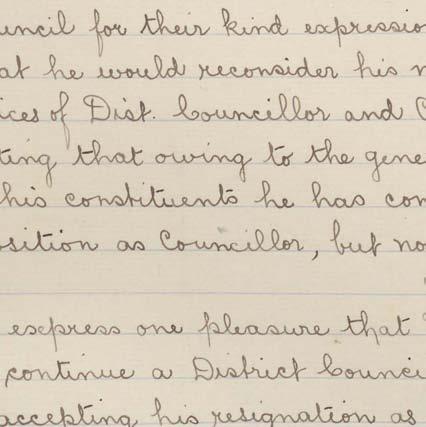 uncil for their kind expressio
at he would reconsider his r
ices of Dist. Councillor and C
ting that owing to the gene
his constituents he has con
osition as Councillor, but no
express one pleasure that
continue a District Counci
accepting his resignation as